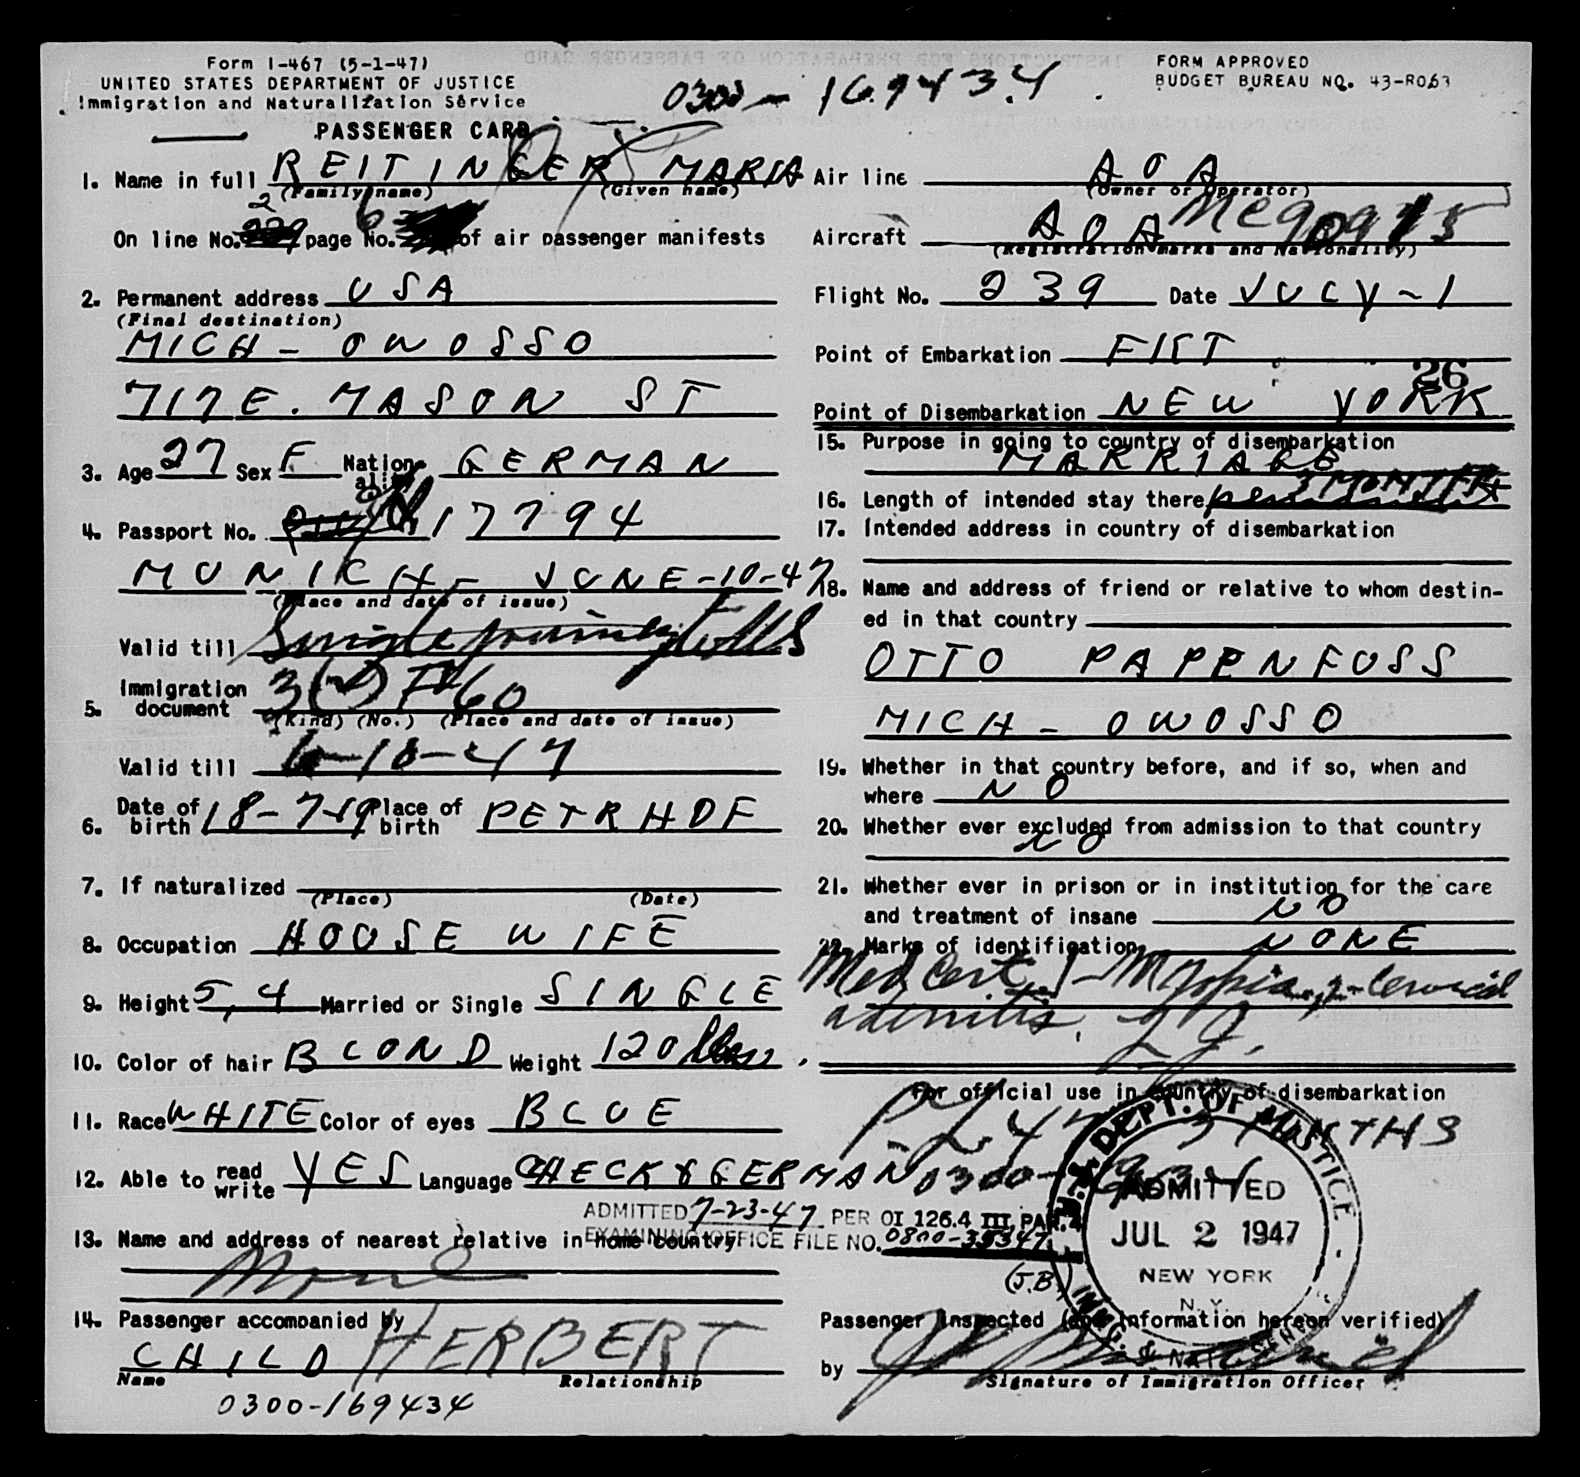 Form I-467 (5-1-47)
UNITED STATES DEPARTMENT OF JUSTICE
Immigration and Naturalization Service
PASSENGER CARD
0300 - 169434
FORM APPROVED
BUDGET BUREAU NO. 43-R063
1. Name in full REITINGER MARIA
(Family name) (Given name)
2 6
On line No. page No. of air passenger manifests
2. Permanent address USA
(Final destination)
MICH - OWOSSO
717 E. MASON ST
3. Age 27 Sex F Nationality GERMAN
4. Passport No. 17794
MUNICH - JUNE-10-47
(Place and date of issue)
Valid till Single journey to US
5. Immigration document 3(2) 60
(Kind) (No.) (Place and date of issue)
Valid till 6-18-47
6. Date of birth 18-7-19 Place of birth PETRHOF
7. If naturalized
(Place) (Date)
8. Occupation HOUSE WIFE
9. Height 5,4 Married or Single SINGLE
10. Color of hair BLOND Weight 120 lbs
11. Race WHITE Color of eyes BLUE
12. Able to read write YES Language CHECK & GERMAN
ADMITTED 7-23-47 PER OI 126.4 III PAR. 4
EXAMINING OFFICE FILE NO. 0800-35347
(J.B.)
13. Name and address of nearest relative in home country
None
14. Passenger accompanied by
CHILD HERBERT
Name Relationship
0300-169434
Air line AOA
(Owner or Operator)
Aircraft AOA
(Registration marks and Nationality)
Flight No. 239 Date JULY-1
Point of Embarkation
26
Point of Disembarkation NEW YORK
15. Purpose in going to country of disembarkation
MARRIAGE
16. Length of intended stay there 3 MONTHS
17. Intended address in country of disembarkation
18. Name and address of friend or relative to whom destined in that country
OTTO PAPENFUSS
MICH - OWOSSO
19. Whether in that country before, and if so, when and
where NO
20. Whether ever excluded from admission to that country
NO
21. Whether ever in prison or in institution for the care
and treatment of insane NO
22. Marks of identification NONE
Med Cert. 1- Myopia, 2- Cervical
adenitis.
For official use in country of disembarkation
3 MONTHS
U.S. DEPT. OF JUSTICE
ADMITTED
JUL 2 1947
NEW YORK
N.Y.
IMMIG. & NATZ. SERV.
Passenger inspected (and information hereon verified)
by
Signature of Immigration Officer